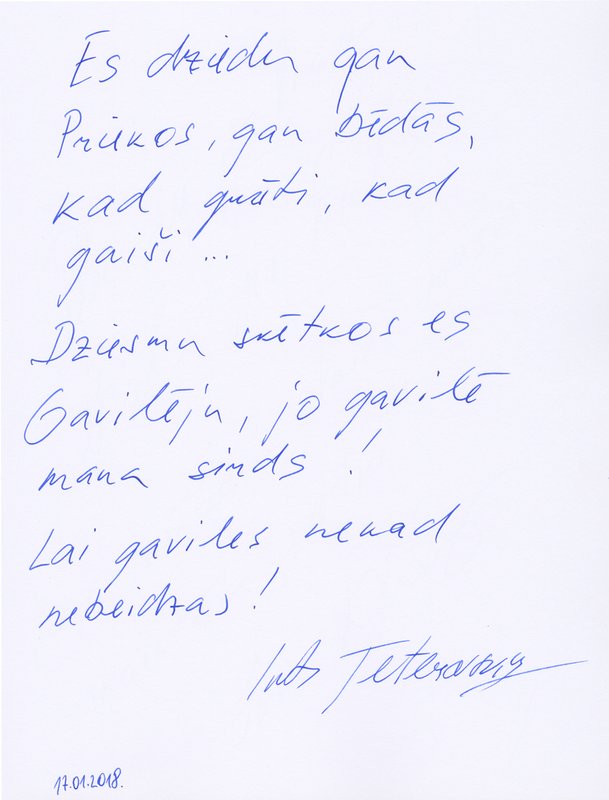 Es dziedu gan
Priekos, gan bēdās,
kad grūti, kad
gaiši...
Dziesmu svētkos es
Gavilēju, jo gavilē
mana sirds!
Lai gaviles nekad
nebeidzas!
Ints Teterovskis
17.01.2018.